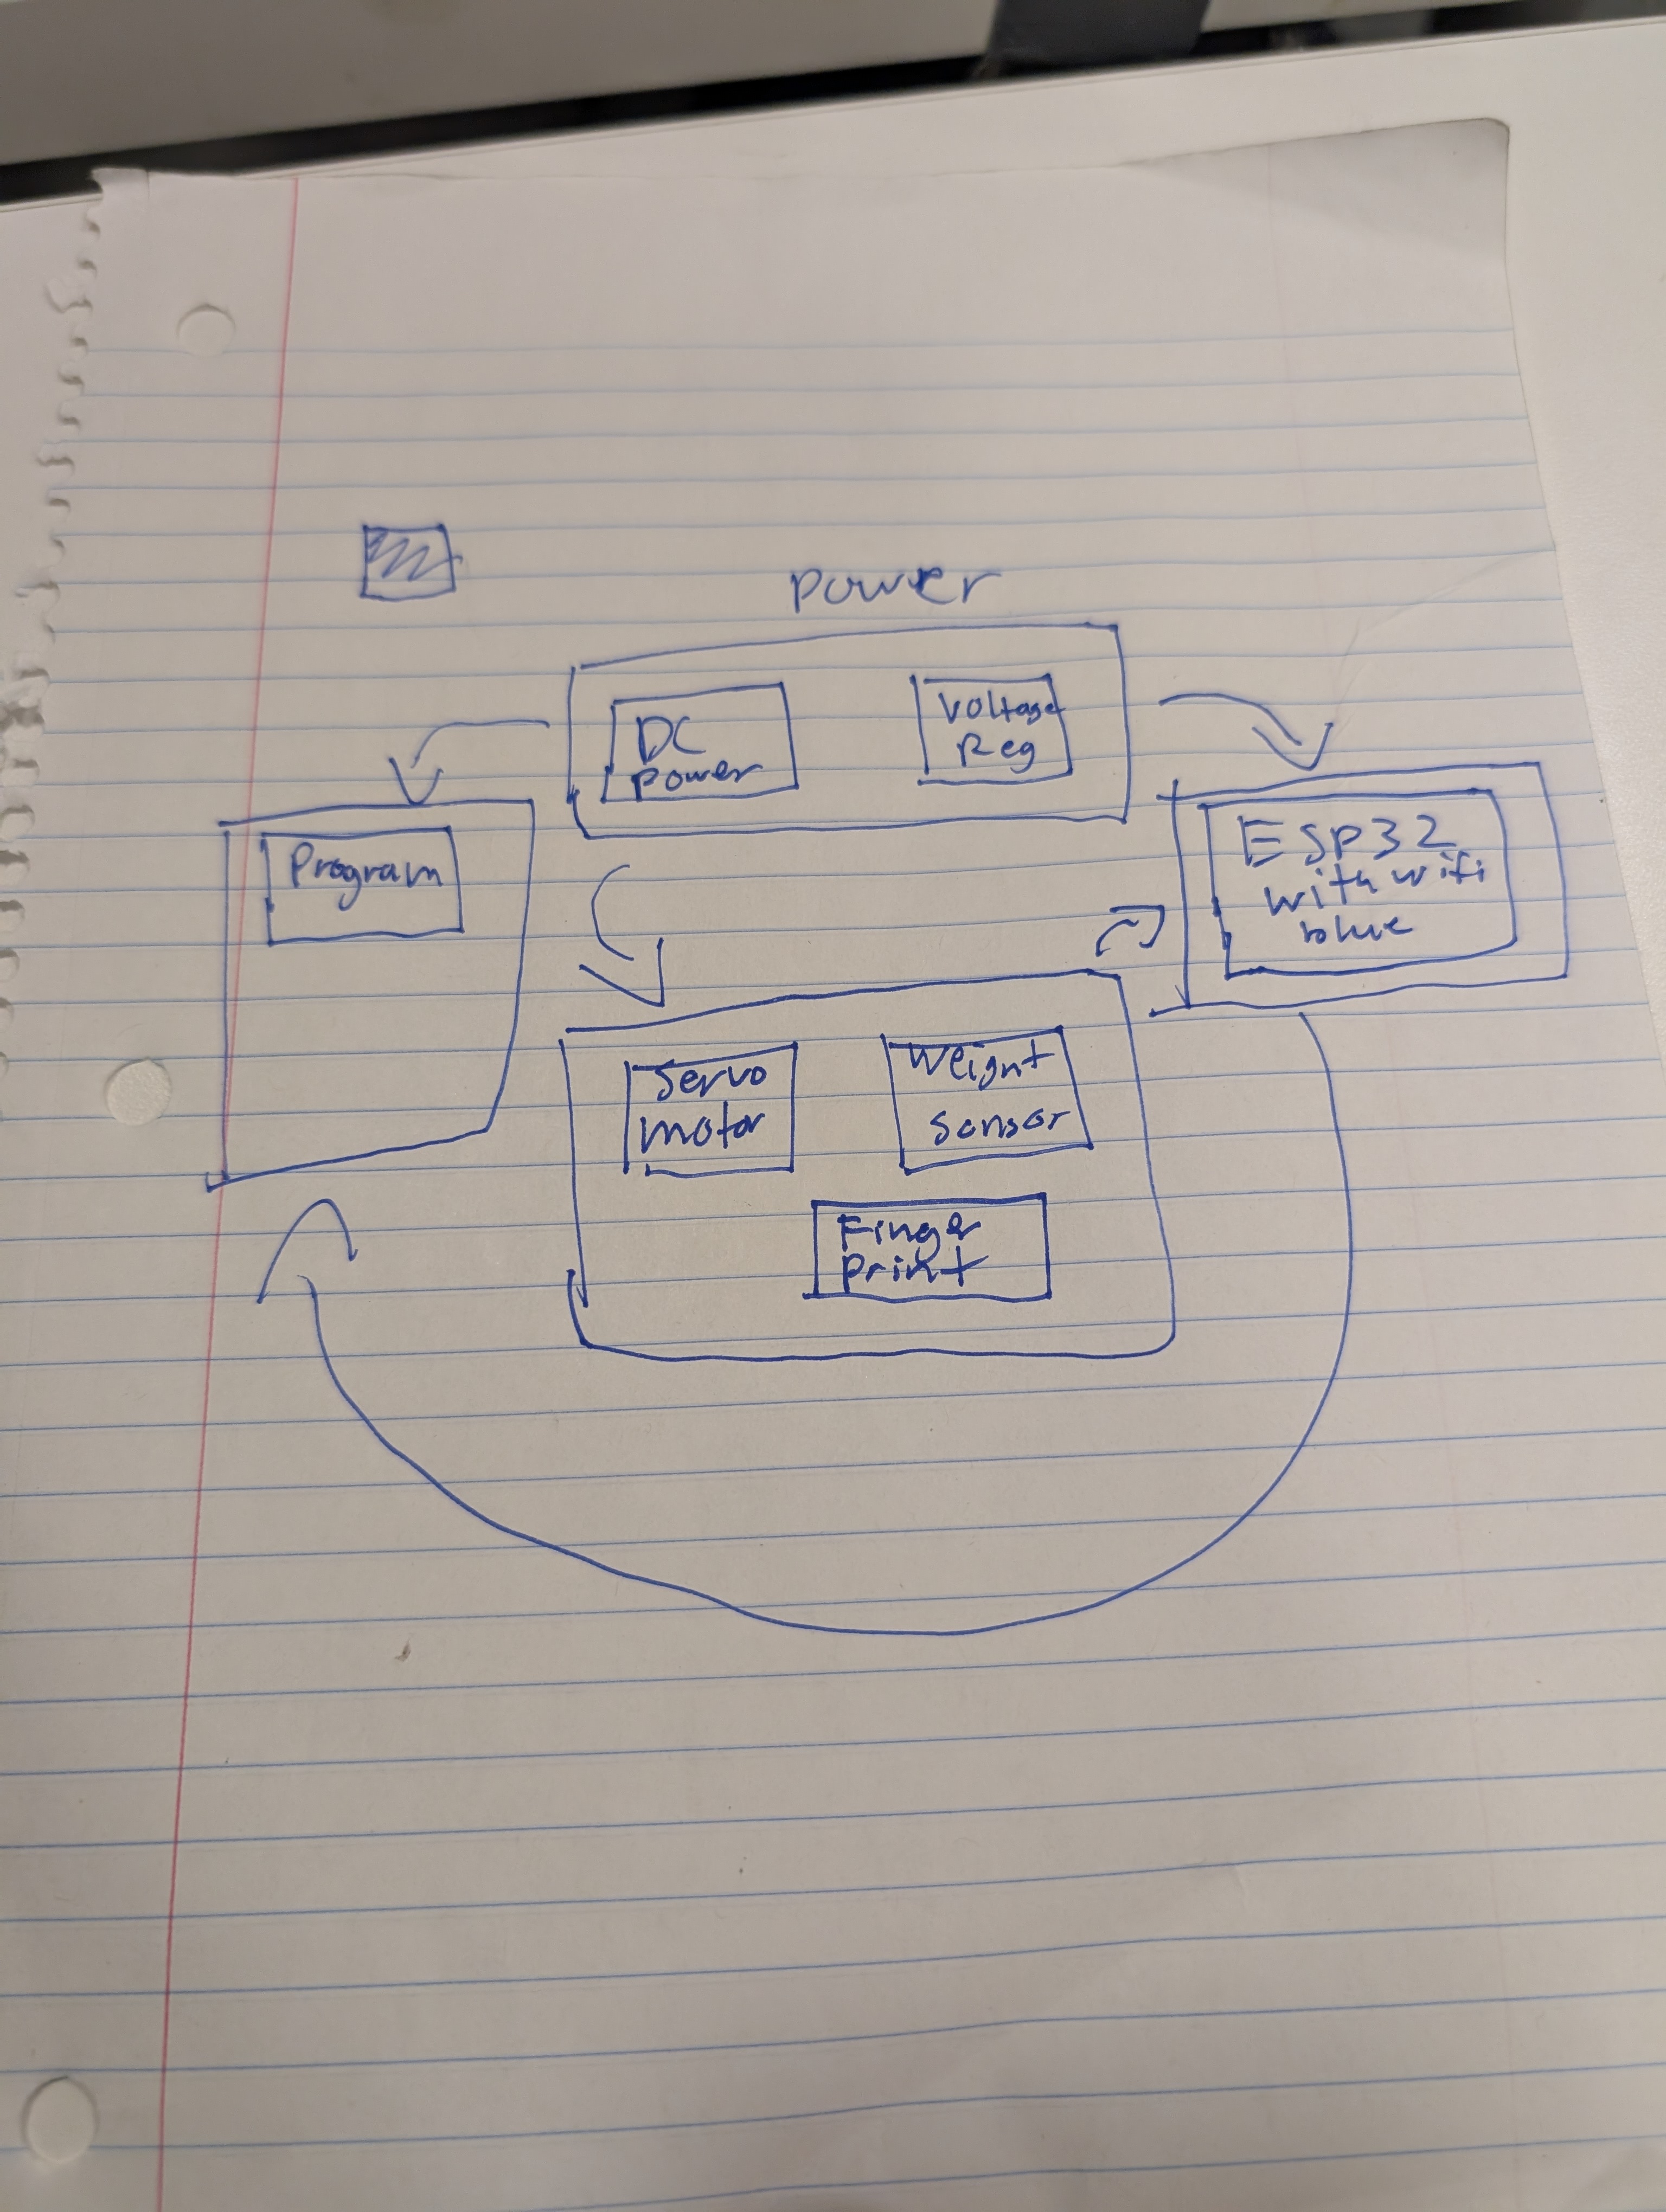 power
DC
power
Voltage
Reg
Program
ESP32
with wifi
blue
Servo
motor
Weight
sensor
Finger
print